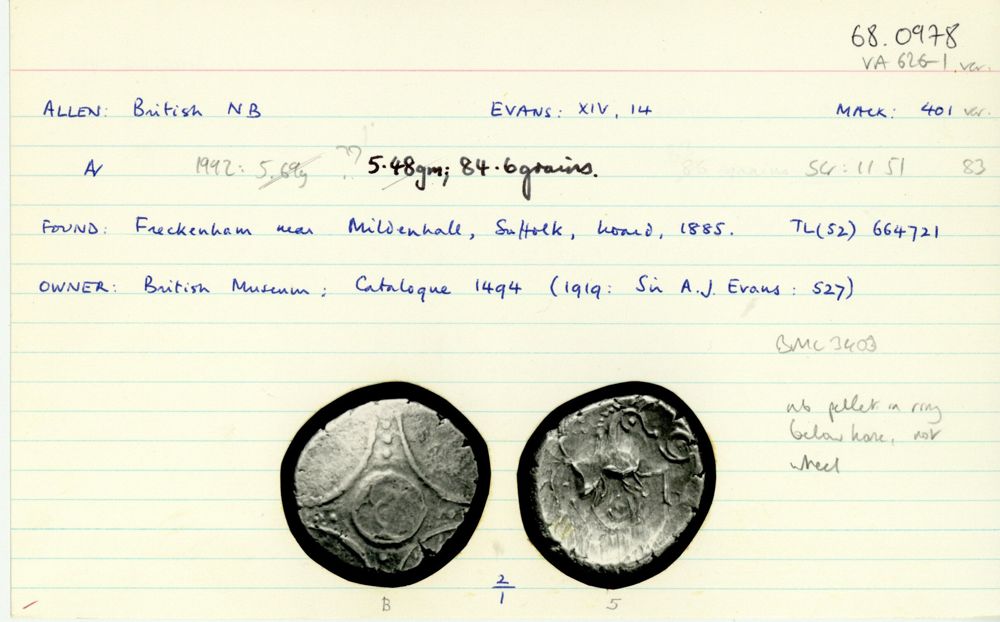 68.0978
VA 626-1 var.
ALLEN: British NB EVANS: XIV, 14 MACK: 401 var.
AV 1992: 5.69g ?? 5.48gm; 84.6grains. 86 grains SG: 11 51 83
FOUND: Freckenham near Mildenhall, Suffolk, hoard, 1885. TL(52) 664721
OWNER: British Museum; Catalogue 1494 (1919: Sir A.J. Evans: 527)
BMC 3403
nb pellet in ring
below horse, not
wheel
2
1
B 5